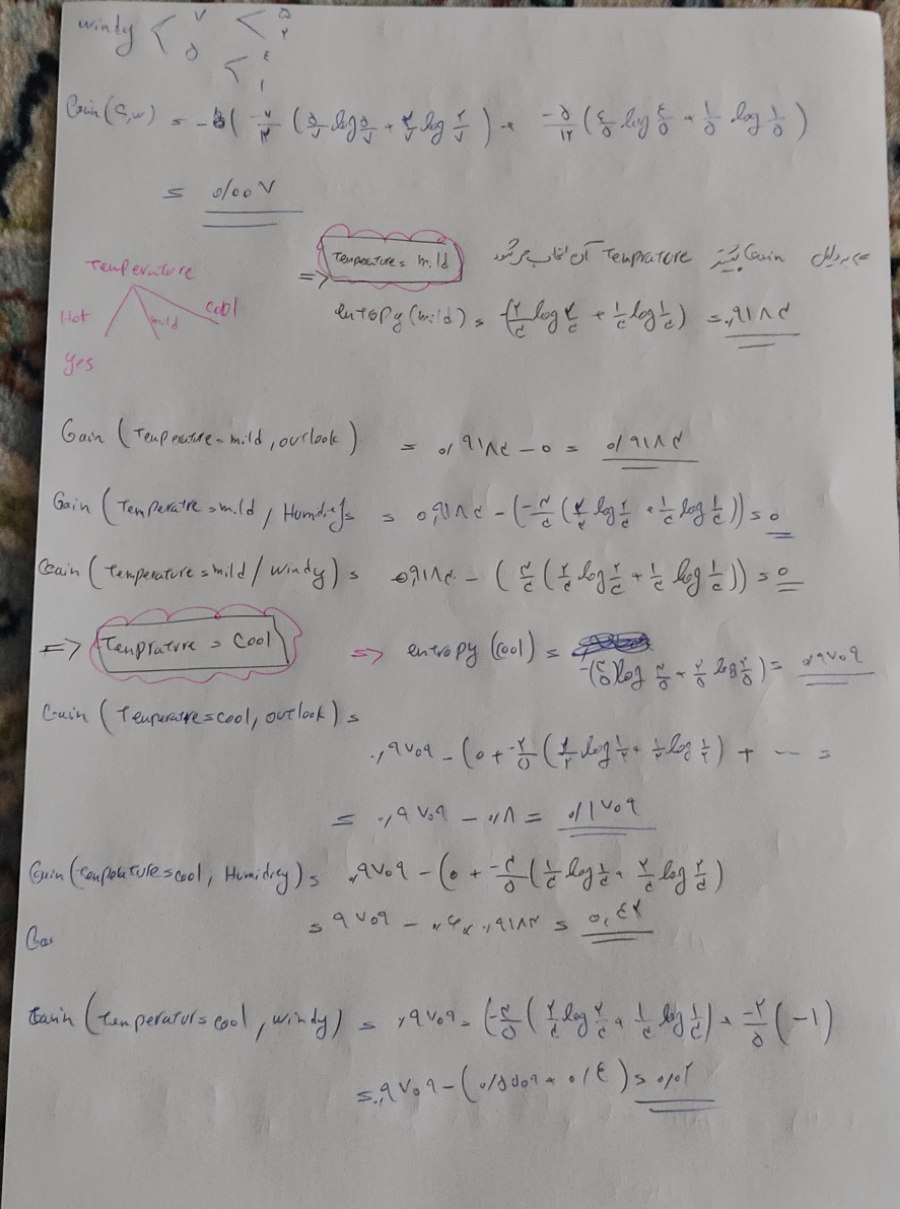 windy < ۷ < ۵ ۲
۵ < ۴ ۱
Gain(S,w) = -( -۷/۱۲ (۵/۷ log ۵/۷ + ۲/۷ log ۲/۷) + -۵/۱۲ (۴/۵ log ۴/۵ + ۱/۵ log ۱/۵)
= ۰/۰۰۷
=> به دلیل Gain بیشتر Temprature آن انتخاب می‌شود
Temperature
Hot mild cool
yes
=> Temperature = mild
entropy(mild) = -(۲/۳ log ۲/۳ + ۱/۳ log ۱/۳) = ۰,۹۱۸۳
Gain (Temperature = mild, outlook) = ۰,۹۱۸۳ - ۰ = ۰/۹۱۸۳
Gain (Temperatre = mild, Humdity) = ۰,۹۱۸۳ - (-۳/۳ (۲/۳ log ۲/۳ + ۱/۳ log ۱/۳)) = ۰
Gain (Temperature = mild / windy) = ۰,۹۱۸۳ - (۳/۳ (۲/۳ log ۲/۳ + ۱/۳ log ۱/۳)) = ۰
=> Temprature = Cool => entropy (cool) = -(۳/۵ log ۳/۵ + ۲/۵ log ۲/۵) = ۰,۹۷۰۹
Gain (Temperatre = cool, outlook) =
۰,۹۷۰۹ - (۰ + -۲/۵ (۱/۲ log ۱/۲ + ۱/۲ log ۱/۲) + --- =
= ۰,۹۷۰۹ - ۰,۸ = ۰/۱۷۰۹
Gain (temperature = cool, Humidity) = ۰,۹۷۰۹ - (۰ + -۳/۵ (۱/۳ log ۱/۳ + ۲/۳ log ۲/۳)
= ۹۷۰۹ - ۰,۶ × ۰,۹۱۸۳ = ۰,۴۲
Gai
Gain (temperature = cool, windy) = ,۹۷۰۹ - (-۳/۵ (۲/۳ log ۲/۳ + ۱/۳ log ۱/۳) + -۲/۵ (-1)
= ۰,۹۷۰۹ - (۰/۵۵۰۹ + ۰/۴) = ۰/۰۲